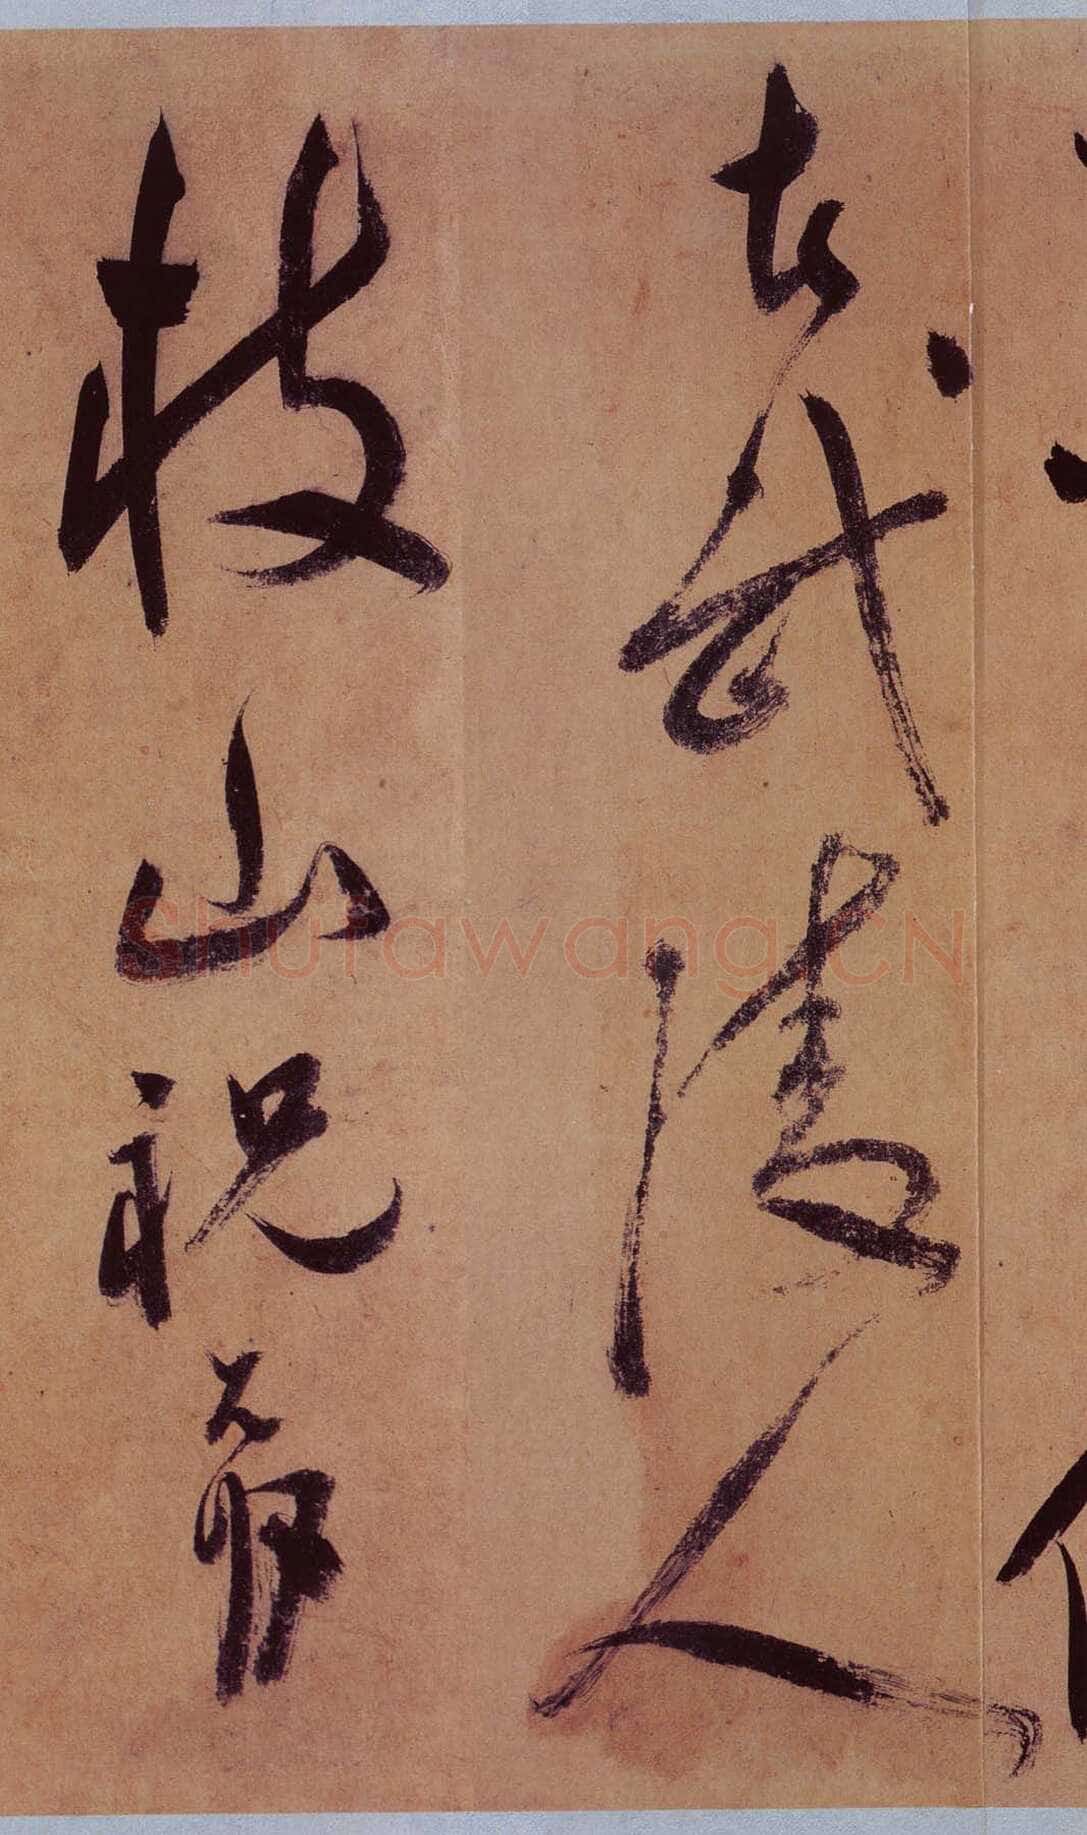 武陵人
枝山祝允明
Shufawang.CN